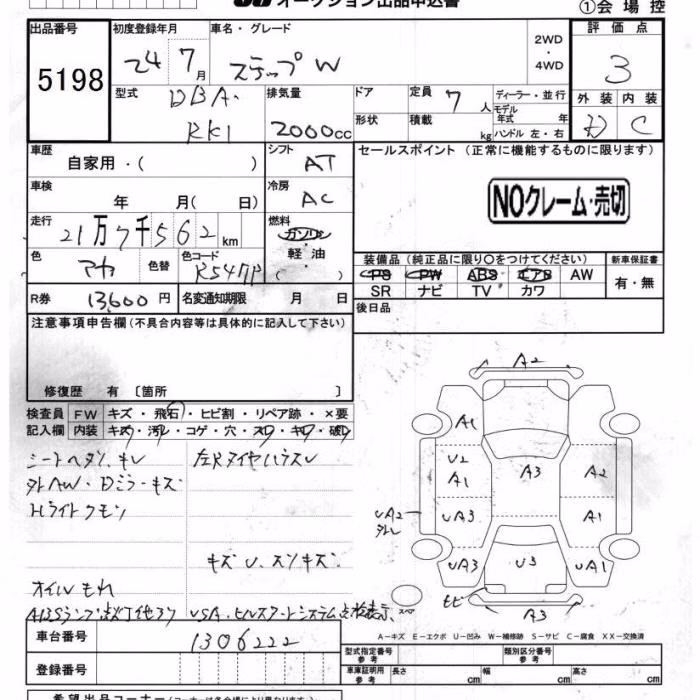 オークション出品申込書
①会場控
出品番号 初度登録年月 車名・グレード 2WD 評価点
5198 24 7月 ステップW ・4WD 3
型式 DBA- 排気量 ドア 定員 7人 ディーラー・並行 外装 内装
RK1 2000cc 形状 積載 kg モデル年式 年 D C
ハンドル 左・右
車歴 シフト セールスポイント (正常に機能するものに限ります)
自家用・( ) AT
車検 年 月( 日) 冷房 AC NOクレーム・売切
走行 21万7千562km 燃料 ガソリン
色 アカ 色替 色コード R547P 軽油 ( )
装備品 (純正品に限り○をつけてください) 新車保証書
PS PW ABS エアB AW 有・無
SR ナビ TV カワ
R券 13,600円 名変通知期限 月 日 後日品
注意事項申告欄 (不具合内容等は具体的に記入して下さい)
修復歴 有 〔箇所 〕
検査員 FW キズ・飛石・ヒビ割・リペア跡・×要
記入欄 内装 キズ・汚レ・コゲ・穴・スレ・キレ・破レ
シートヘタリ、キレ 左Rタイヤハウスレ
外AW・Dミラーキズ
Hライトクモリ
キズ U、スリキズ
オイルもれ
ABSランプ点灯 他 VSA、ヒルスタートシステム点検表示
A2
A1
U2 A3 A2
A1
UA2 UA3 A1
外レ
UA3 U3 UA1
スペア A3
A-キズ E-エクボ U-凹み W-補修跡 S-サビ C-腐食 XX-交換済
車台番号 1306222
型式指定番号 参考 類別区分番号 参考
登録番号 車庫証明用 参考 長さ cm 幅 cm 高さ cm
希望出品コーナー